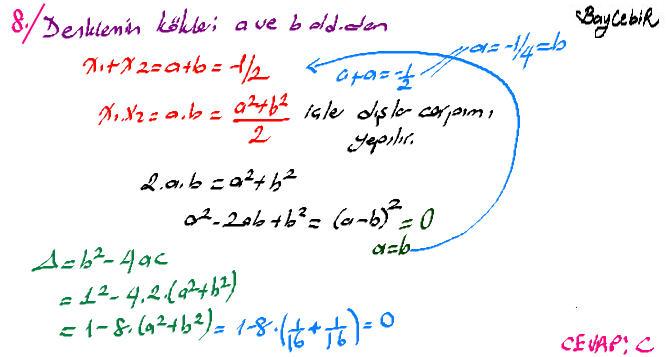 8./ Denklemin kökleri a ve b old.dan
BAYCEBİR
x₁+x₂=a+b=-1/2
a+a=-1/2
a=-1/4=b
x₁.x₂=a.b=(a²+b²)/2 içler dışlar çarpımı
yapılır.
2.a.b=a²+b²
a²-2ab+b²=(a-b)²=0
a=b
Δ=b²-4ac
=1²-4.2.(a²+b²)
=1-8.(a²+b²)=1-8.(1/16+1/16)=0
CEVAP: C